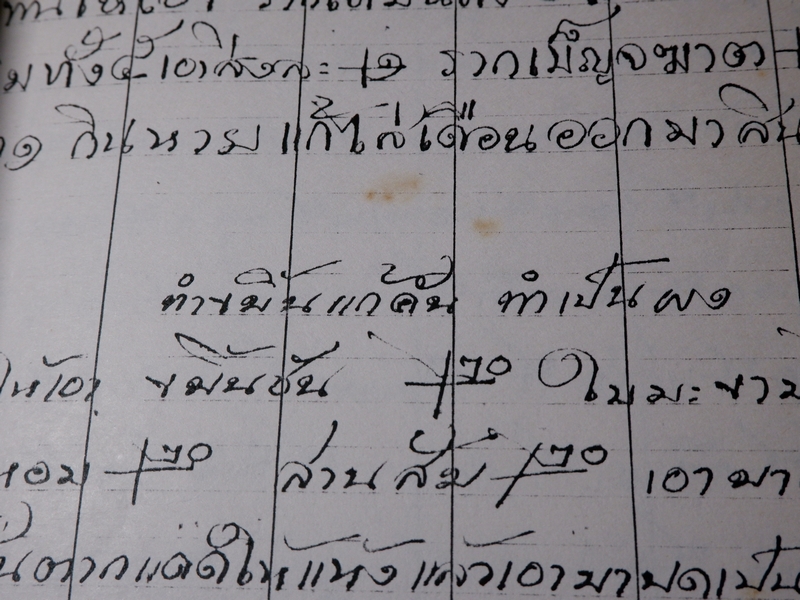 มทั้ง๕ เอาสิ่งละ ๑ รวกเบ็ญจฆาต
๑ กินหาย แก้ไส่เดือนออกมาสิ้น
ทำขมิ้นแก้คัน ทำเป็นผง
ให้เอา ขมิ้นชัน ๒๐ ใบมะขาม
หอม ๒๐ ส่านส้ม ๒๐ เอามา
ตากแดดให้แห้งแล้วเอามาบดเป็น